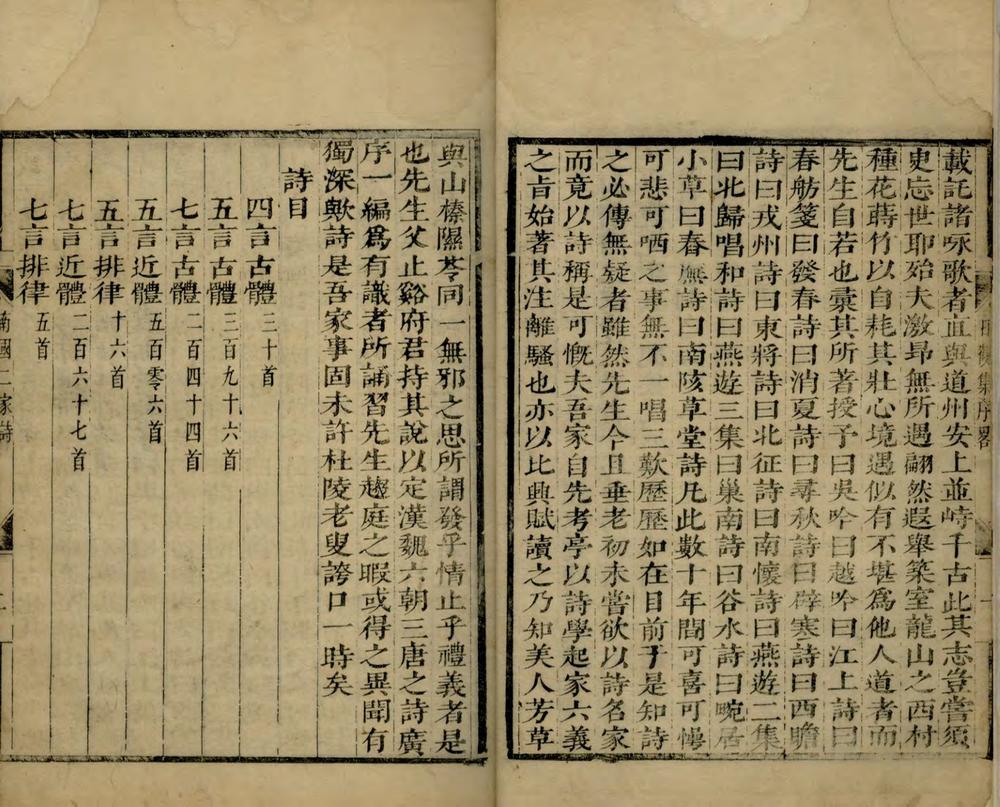 載託諸咏歌者直與道州安上並峙千古此其志豈嘗須
史忘世耶始夫激昂無所遇翩然遐舉築室龍山之西村
種花蒔竹以自耗其壯心境遇似有不堪為他人道者而
先生自若也彙其所著授予曰吳吟曰越吟曰江上詩曰
春舫箋曰發春詩曰消夏詩曰尋秋詩曰辟寒詩曰西瞻
詩曰戎州詩曰東將詩曰北征詩曰南懷詩曰燕遊二集
曰北歸唱和詩曰燕遊三集曰巢南詩曰谷水詩曰晼居
小草曰春廡詩曰南陔草堂詩凡此數十年間可喜可愕
可悲可哂之事無不一唱三歎歷歷如在目前于是知詩
之必傳無疑者雖然先生今且垂老初未嘗欲以詩名家
而竟以詩稱是可慨夫吾家自先考亭以詩學起家六義
之旨始著其注離騷也亦以比興賦讀之乃知美人芳草
集序畧
一
與山榛隰苓同一無邪之思所謂發乎情止乎禮義者是
也先生父止谿府君持其說以定漢魏六朝三唐之詩廣
序一編爲有識者所誦習先生趨庭之暇或得之異聞有
獨深歟詩是吾家事固未許杜陵老叟誇口一時矣
詩目
四言古體 三十首
五言古體 三百九十六首
七言古體 二百四十四首
五言近體 五百零六首
五言排律 十六首
七言近體 二百六十七首
七言排律 五首
南國二家詩